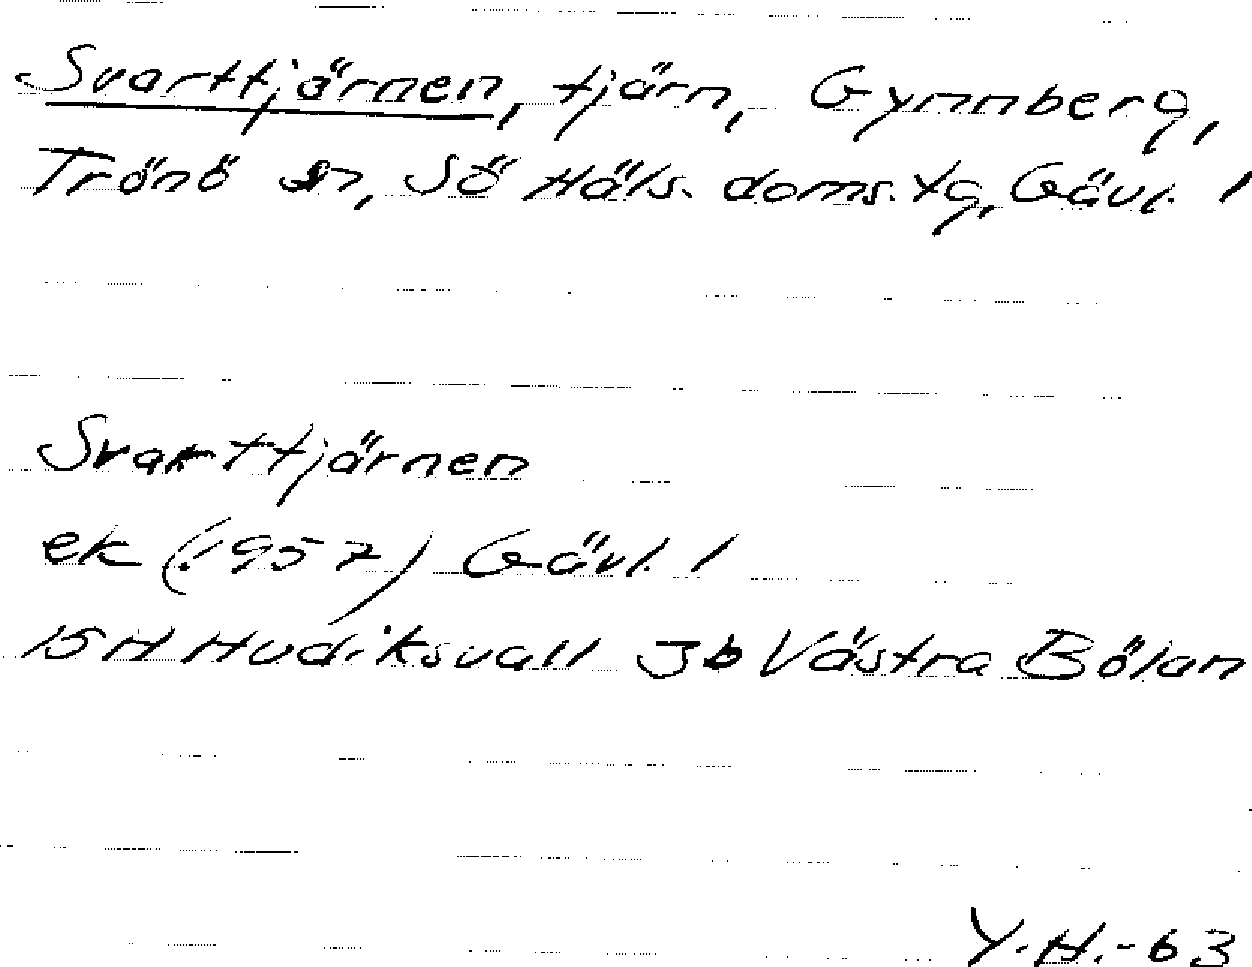 Svarttjärnen, tjärn, Gynnberg,
Trönö sn, Sö Häls. doms. tg, Gävl. 1
Svarttjärnen
ek (1957) Gävl. 1
15H Hudiksvall 3b Västra Bölan
Y.H.-63